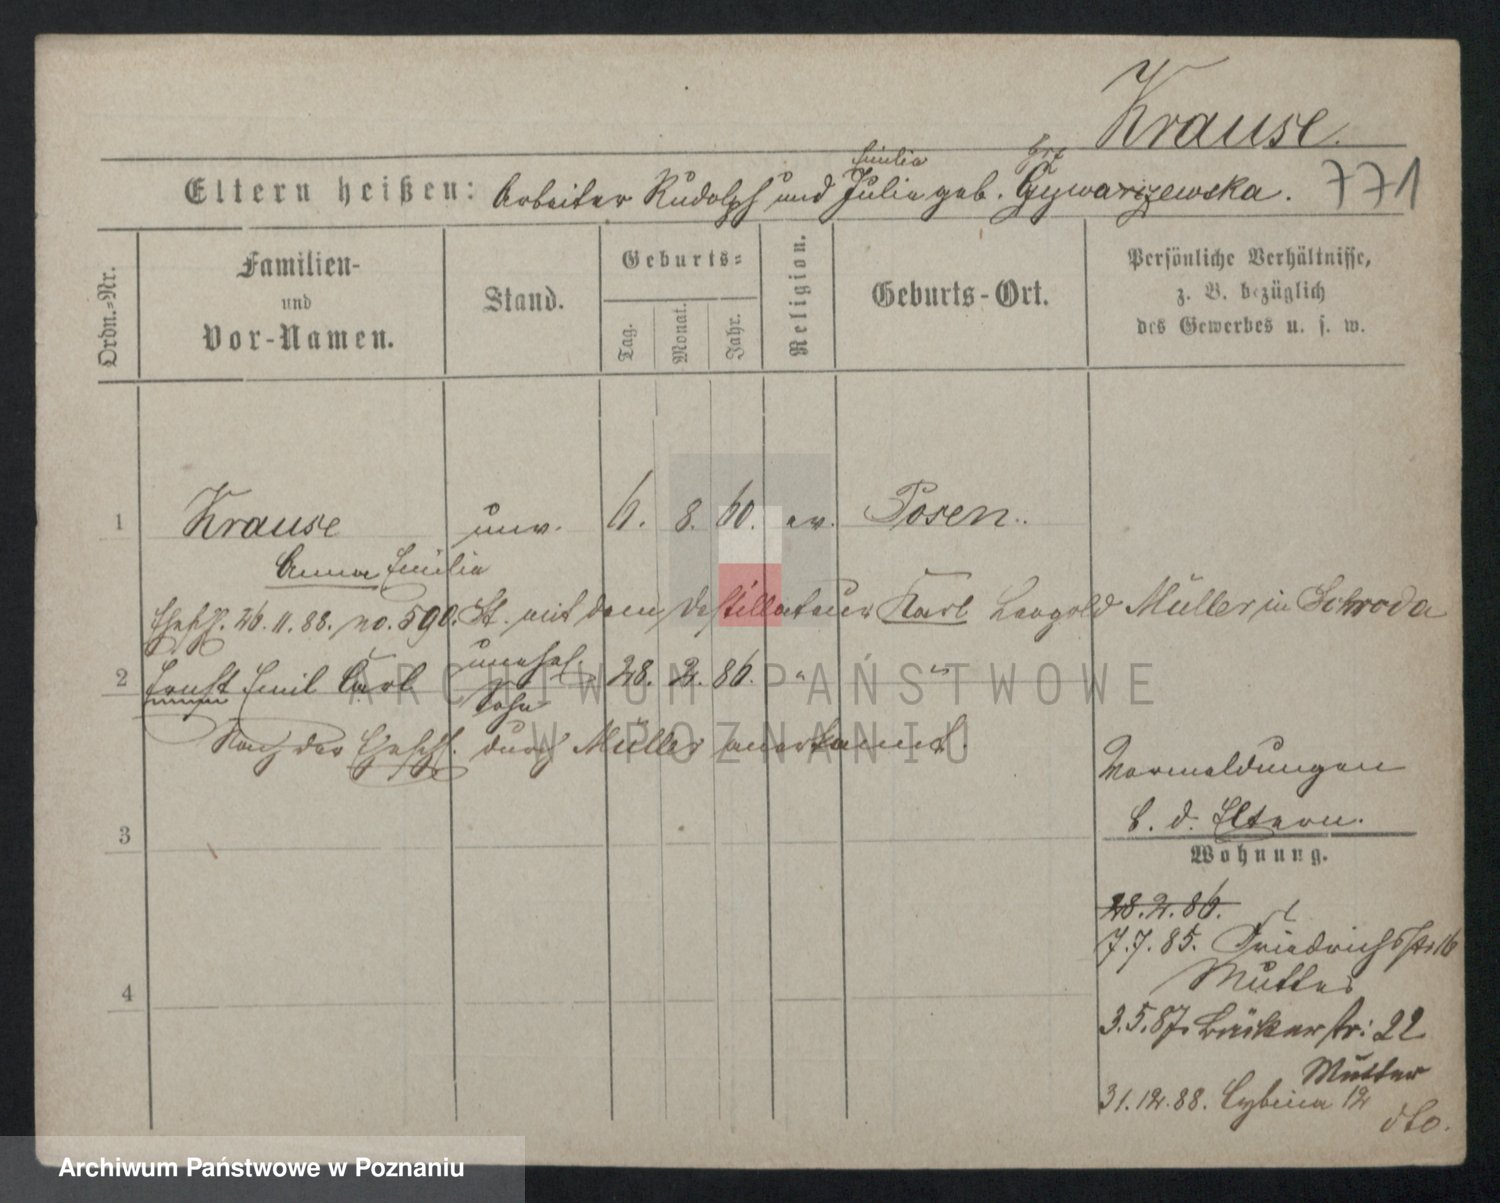 Krause.
Emilia
Eltern heißen: Arbeiter Rudolph und Julie geb. Gywarzewska. 771
Ordn.-Nr.
Familien-
und
Vor-Namen.
Stand.
Geburts-
Tag.
Monat.
Jahr.
Religion.
Geburts-Ort.
Persönliche Verhältnisse,
z. B. bezüglich
des Gewerbes u. s. w.
1 Krause unv. 6. 8. 60. ev. Posen.
Anna Emilie
Eheschl. 26. 11. 88. no. 590. St. mit dem Destillateur Karl Leopold Müller in Schroda
2 Ernst Emil Carl unehel. 28. 2. 86. " "
Sohn
Nach der Eheschl. durch Müller anerkannt.
Vermeldungen
b. d. Eltern.
3
Wohnung.
28. 2. 86.
7. 7. 85. Friedrichsstr. 16
Mutter
4
3. 5. 87. Bäckerstr: 22
Mutter
31. 12. 88. Cybina 12
dto.
ARCHIWUM PAŃSTWOWE
W POZNANIU
Archiwum Państwowe w Poznaniu